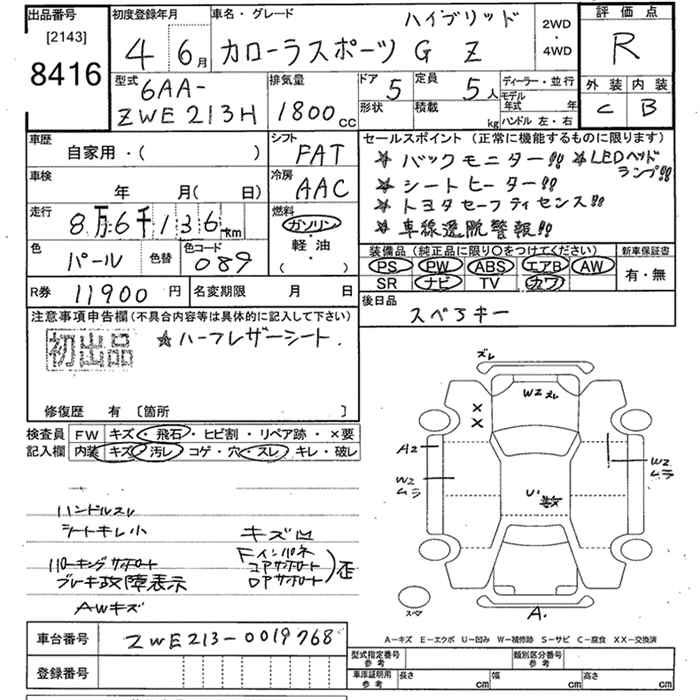 出品番号
[2143]
8416
初度登録年月
4 6月
車名・グレード
ハイブリッド
カローラスポーツ G Z
2WD
・
4WD
評価点
R
外装 内装
C B
型式
6AA-
ZWE213H
排気量
1800cc
ドア 5
定員 5人
形状
積載 kg
ディーラー・並行
モデル
年式 年
ハンドル 左・右
車歴
自家用・( )
車検
年 月( 日)
走行
8万6千136km
色
パール
色替
色コード
089
シフト
FAT
冷房
AAC
燃料
ガソリン
・
軽油
( ・ )
セールスポイント(正常に機能するものに限ります)
☆ バックモニター!! ☆ LEDヘッド
ランプ!!
☆ シートヒーター!!
☆ トヨタセーフティセンス!!
☆ 車線逸脱警報!!
装備品(純正品に限り○をつけてください)
PS PW ABS エアB AW
SR ナビ TV カワ
新車保証書
有・無
R券 11900円
名変期限 月 日
後日品
スペアキー
注意事項申告欄(不具合内容等は具体的に記入して下さい)
初出品 ☆ハーフレザーシート.
修復歴 有 〔箇所 〕
検査員
記入欄
FW キズ・飛石・ヒビ割・リペア跡・×要
内装 キズ・汚レ・コゲ・穴・スレ・キレ・破レ
ハンドルスレ
シートキレ小
パーキングサポート
ブレーキ故障表示
AWキズ
キズ凹
Fインパネ
コアサポート
ロアサポート
歪
ズレ
W2 ズレ
X
X
A2
W2
ムラ
W2
ムラ
U1
A.
スペア
A-キズ E-エクボ U-凹み W-補修跡 S-サビ C-腐食 XX-交換済
車台番号 ZWE213-0019768
登録番号
型式指定番号
参考
類別区分番号
参考
車庫証明用
参考
長さ cm
幅 cm
高さ cm